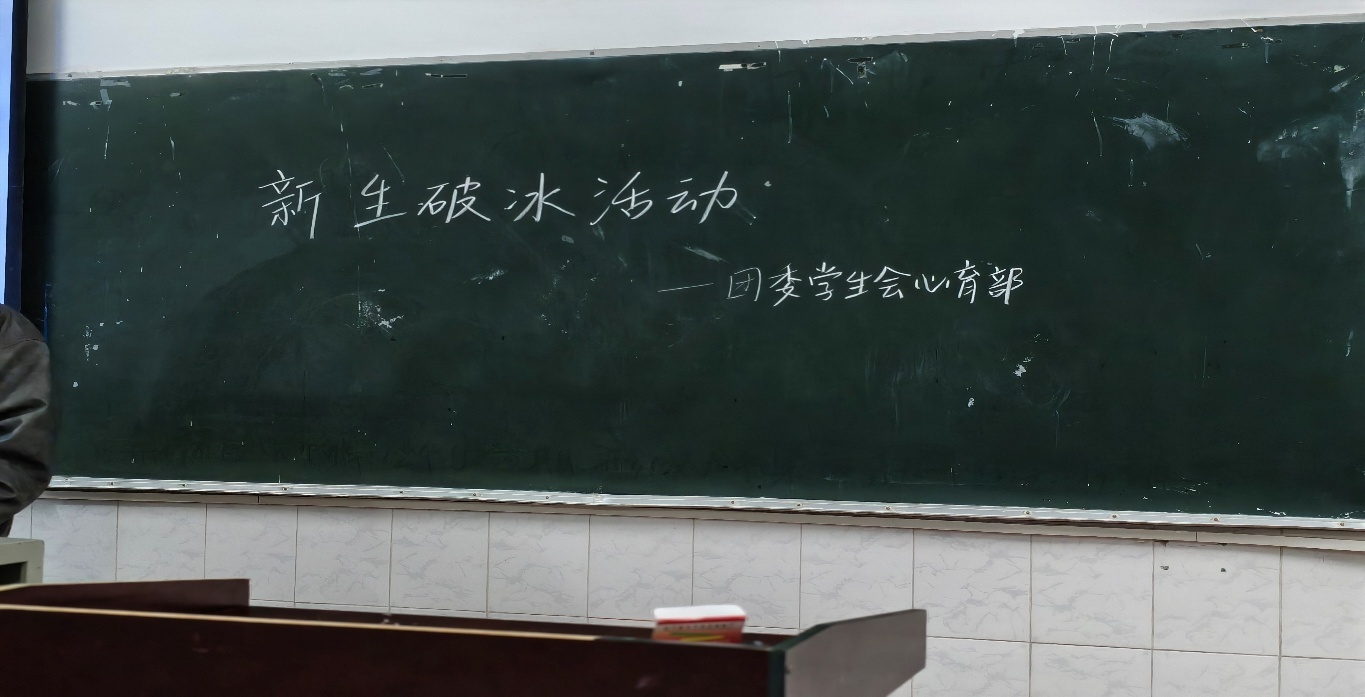 新生破冰活动
——团委学生会心育部